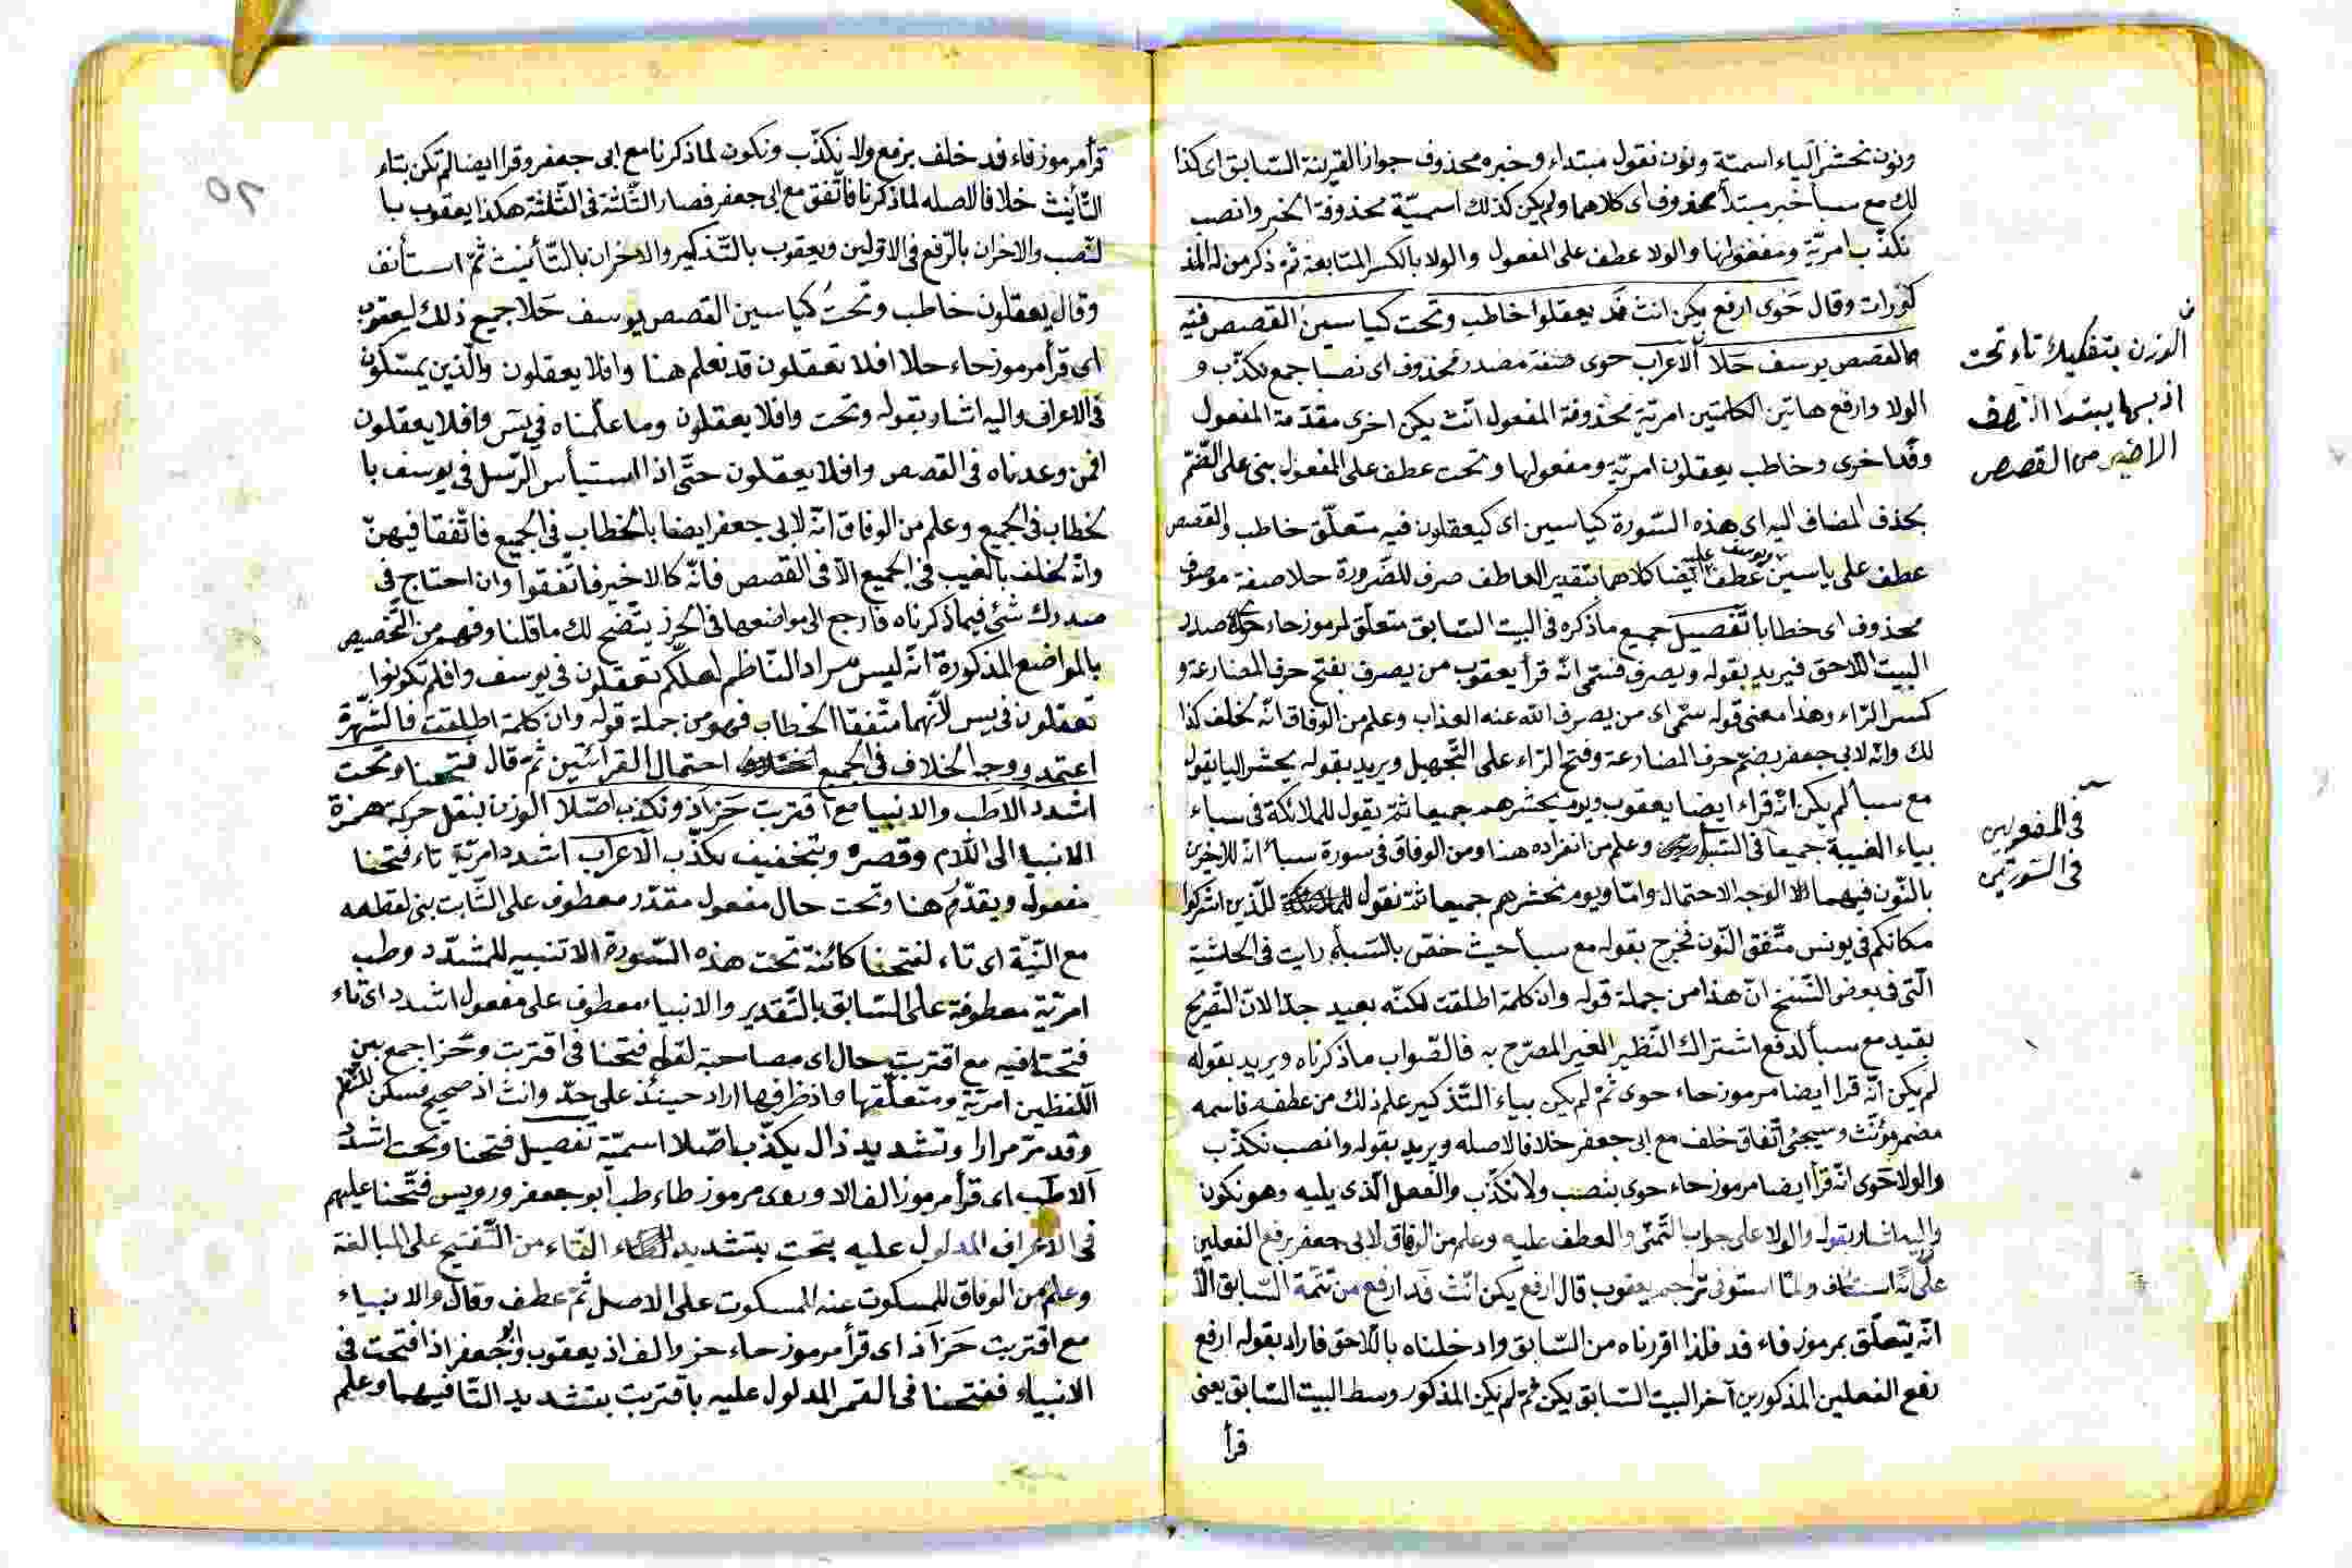 ونون نحشر الياء اسمتة ونون نقول مبتداء وخبره محذوف جواز القرينة السّابق اى كذا
لك مع سبأ خبر مبتدأ محذوف اى كلاهما ولم يكن كذلك اسميّة محذوفة الخبر وانصب
نكذّب امريّة ومفعولها والولا عطف على المفعول والولا بالكسر المتابعة ثمّ ذكر من له المذ
كورات وقال حَوى ارفع يكن انث فَد يعقلوا خاطب وتحت كياسين القصص فتية
ما القصص يوسف حَلا الاعراب حوى صفة مصدر محذوف اى نصبا جمع نكذّب و
الولا وارفع هاتين الكلمتين امريّة محذوفة المفعول انّث يكن اخرى مقدّمة المفعول
وقد اخرى وخاطب يعقلون امريّة ومفعولها وتحت عطف على المفعول بنى على الضّمّ
بحذف المضاف اليه اى هذه السّورة كياسين اى كيعقلون فيه متعلّق خاطب والقصص
ويوسف عليه
عطف على ياسين عطف ايضا كلاهما بتقدير العاطف صرف للضّرورة حلا صفة موصوف
محذوف اى خطابا تفصيل جميع ماذكره فى البيت السّابق متعلّق لمرموز حاء صدر
البيت اللّاحق فيريد بقوله ويصرف فتسمى انّه قرأ يعقوب من يصرف بفتح حرف المضارعة و
كسر الرّاء وهذا معنى قوله سمّى اى من يصرف الله عنه العذاب وعلم من الوفاق انّه لخلف كذا
لك وانّه لابى جعفر بضمّ حرف المضارعة وفتح الرّاء على التّجهيل ويريد بقوله يحشر اليا يقول
مع سبأ لم يكن انّه قراء ايضا يعقوب ويوم يحشرهم جميعا ثمّ يقول للملائكة فى سباء
بياء الغيبة جميعا فى وعلم من انفراده هنا ومن الوفاق فى سورة سبأ انّه للاخرين
بالنّون فيهما الا الوجه الاحتمال وامّا ويوم نحشرهم جميعا ثمّ نقول للّذين اشركوا
مكانكم فى يونس متّفق النّون فخرج بقوله مع سبأ حيث خصّ بالسّبأ رايت فى الحاشية
الّتى فى بعض النّسخ انّ هذا من جملة قوله وان كلمة اطلقت لكنّه بعيد جدّا لانّ التّصريح
بقيد مع سبأ لدفع اشتراك النّظير الغير المصرّح به فالصّواب ماذكرناه ويريد بقوله
لم يكن انّه قرا ايضا مرموز حاء حوى ثمّ لم يكن بياء التّذكير علم ذلك من عطفه فاسمه
مضمر مؤنّث وسيجئ اتّفاق خلف مع ابى جعفر خلافا لاصله ويريد بقوله وانصب نكذّب
والولا حَوى انّه قرأ ايضا مرموز حاء حوى بنصب ولا نكذّب والفعل الّذى يليه وهو نكون
واليه اشار بقوله والولا على جواب التّمنّى والعطف عليه وعلم من الوفاق لابى جعفر برفع الفعلين
على انّه استيناف ولمّا استوفى تراجم يعقوب قال ارفع يكن انّث فَد ارفع من تتمّة السّابق الّا
انّه يتعلّق بمرموز فاء فد فلذا اقررناه من السّابق وادخلناه باللّاحق فاراد بقوله ارفع
رفع الفعلين المذكورين آخر البيت السّابق يكن ثمّ لم يكن المذكور وسط البيت السّابق يعنى
قرأ
الوزن بتفكيك تاء تحت
اذ بها يبتدا النّصف
الاخير من القصص
فى المفعولين
فى السّورتين
٥٢
قرأ مرموز فاء فد خلف برفع ولا نكذّب ونكون لماذكرنا مع ابى جعفر وقرا ايضا لم تكن بتاء
التّأنيث خلافا لاصله لماذكرنا فاتّفق مع ابى جعفر فصار الثّلثة فى الثّلثة هكذا يعقوب با
لنّصب والاخران بالرّفع فى الاوّلين ويعقوب بالتّذكير والاخران بالتّأنيث ثمّ استأنف
وقال يعقلون خاطب وتحتُ كياسين القصص يوسف حَلا جميع ذلك ليعقوب
اى قرأ مرموز حاء حلا افلا تعقلون قد نعلم هنا وافلا يعقلون والّذين يمسّكون
فى الاعراف واليه اشار بقوله وتحت وافلا يعقلون وما علّمناه فى يس وافلا يعقلون
افمن وعدناه فى القصص وافلا يعقلون حتّى اذا استيأس الرّسل فى يوسف با
لخطاب فى الجميع وعلم من الوفاق انّه لابى جعفر ايضا بالخطاب فى الجميع فاتّفقا فيهنّ
وانّه لخلف بالغيب فى الجميع الّا فى القصص فانّه كالاخير فاتّفقوا وان احتاج فى
صدرك شئ فيماذكرناه فارجع الى مواضعها فى الحرز يتّضح لك ماقلنا وفهم من التّخصيص
بالمواضع المذكورة انّه ليس مراد النّاظم لعلّكم تعقلون فى يوسف وافلم تكونوا
تعقلون فى يس لانّهما متّفقا الخطاب فهو من جملة قوله وان كلمة اطلقت فالشّهرة
اعتمد ووجه الخلاف فى الجميع احتمال القرائتين ثمّ قال فتحنا وتحت
اشدد الاطب والانبيا مع اقتربت حَزاَذ ونكذب اصّلا الوزن بنقل حركة همزة
الانبيا الى اللّام وقصره وبتخفيف يكذّب الاعراب اشدد امريّة تاء فتحنا
مفعوله ويقدّم هنا وتحت حال مفعول مقدّر معطوف على الثّابت بنى لقطعه
مع النّيّة اى تاء لفتحنا كائنة تحت هذه السّورة الا تنبيه للمشدّد وطب
امريّة معطوفة على السّابق بالتّقدير والانبياء معطوف على مفعول اشدد اى تاء
فتحنا فيه مع اقتربت حال اى مصاحبة لقوله فتحنا فى اقتربت وحُز اجمع بين
اللّفظين امريّة ومتعلّقها واذ ظرفها اراد حينئذ على حدّ وانث اذ صحيح مسكن للنّظم
وقد مرّ مرارا وتشديد ذال يكذّب اصّلا اسميّة تفصيل فتحنا وتحت اشدد
اَلا طَب اى قرأ مرموز الف الا وروى مرموز طاء طب ابو جعفر ورويس فتّحنا عليهم
فى الاعراف المدلول عليه بتحت بتشديد التّاء من التّفتيح على المبالغة
وعلم من الوفاق للمسكوت عنه المسكوت على الاصل ثمّ عطف وقال والانبياء
مع اقتربت حَزاَذ اى قرأ مرموز حاء حز والف اذ يعقوب وابو جعفر اذا فتحت فى
الانبياء ففتحنا فى القمر المدلول عليه باقتربت بتشديد التّا فيهما وعلم